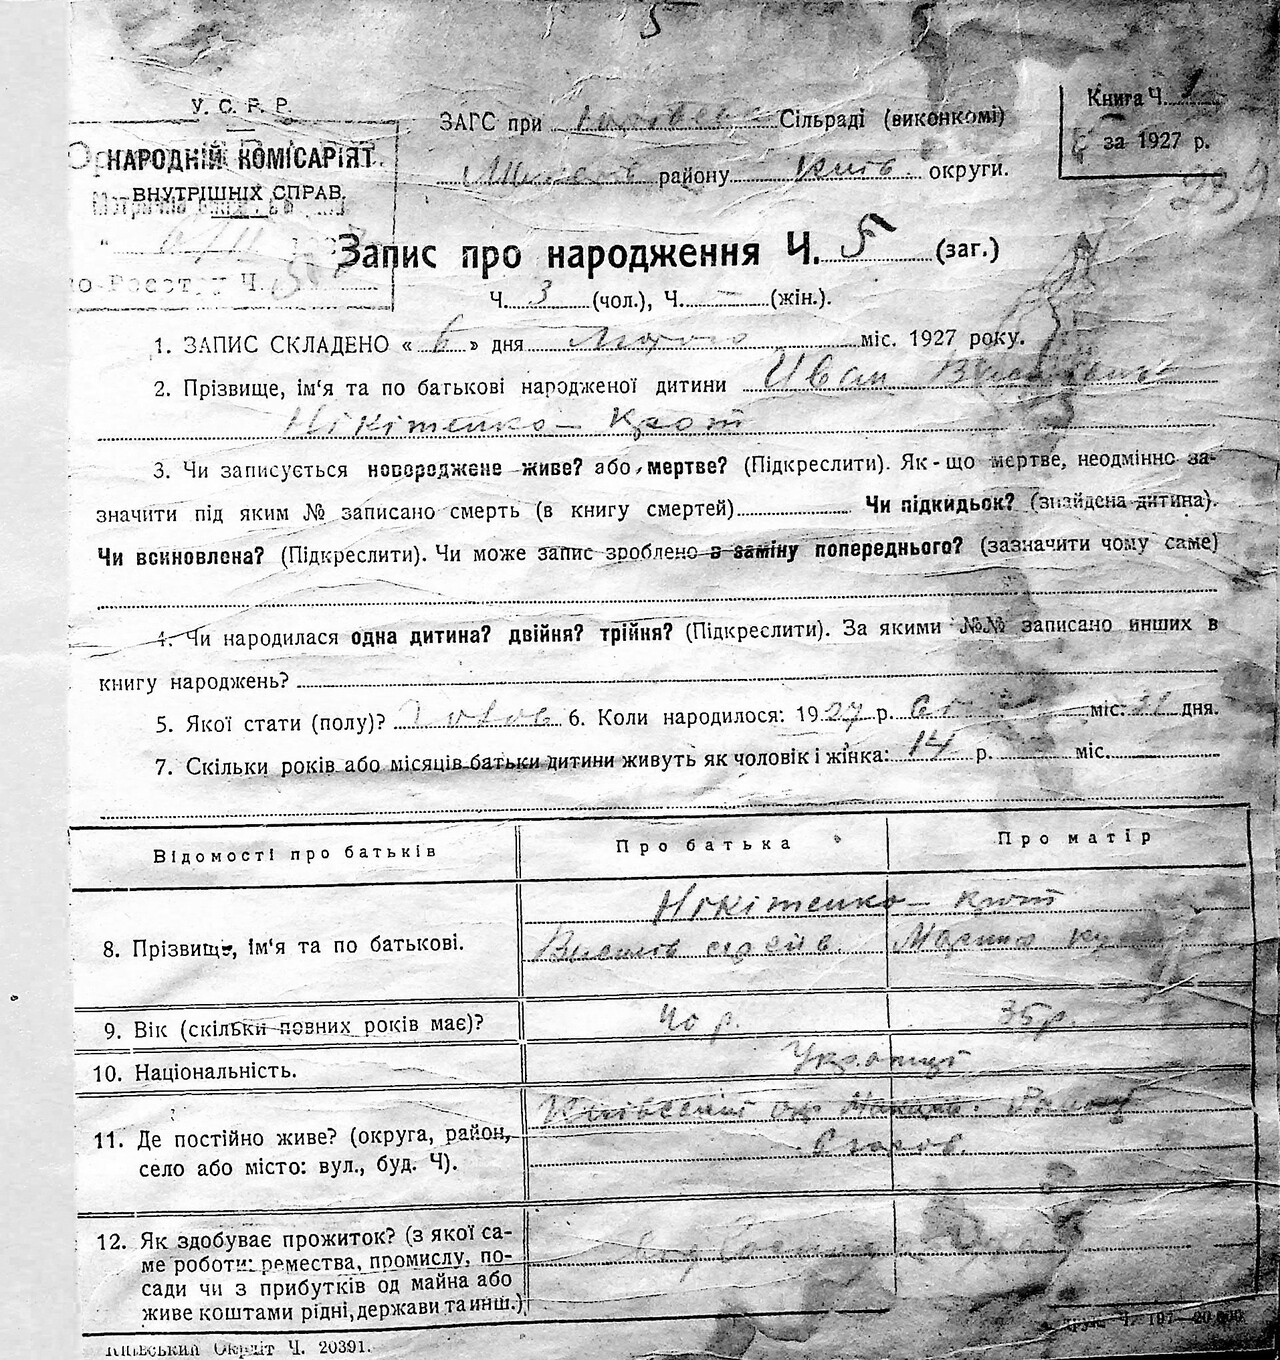 5
У. С. Р. Р.
НАРОДНІЙ КОМІСАРІЯТ
ВНУТРІШНІХ СПРАВ.
ЗАГС при Сільраді (виконкомі)
району Київ. округи.
Книга Ч. 1
за 1927 р.
239
по Реєстру Ч.
Запис про народження Ч. 5 (заг.)
Ч. 3 (чол.), Ч. – (жін.).
1. ЗАПИС СКЛАДЕНО « 6 » дня Лютого міс. 1927 року.
2. Прізвище, ім‘я та по батькові народженої дитини Иван
Нікітенко – Крот
3. Чи записується новороджене живе? або мертве? (Підкреслити). Як-що мертве, неодмінно за-
значити під яким № записано смерть (в книгу смертей) Чи підкидьок? (знайдена дитина).
Чи всиновлена? (Підкреслити). Чи може запис зроблено в заміну попереднього? (зазначити чому саме)
4. Чи народилася одна дитина? двійня? трійня? (Підкреслити). За якими №№ записано инших в
книгу народжень?
5. Якої стати (полу)? 6. Коли народилося: 1927 р. міс. 31 дня.
7. Скільки років або місяців батьки дитини живуть як чоловік і жінка: 14 р. міс.
Відомості про батьків
Про батька
Про матір
8. Прізвище, ім‘я та по батькові.
Нікітенко – Крот
9. Вік (скільки повних років має)?
40 р.
35 р.
10. Національність.
Українці
11. Де постійно живе? (округа, район,
село або місто: вул., буд. Ч).
12. Як здобуває прожиток? (з якої са-
ме роботи: ремества, промислу, по-
сади чи з прибутків од майна або
живе коштами рідні, держави та инш.)
Київський Окрліт Ч. 20391.
Ч. 197—20.000